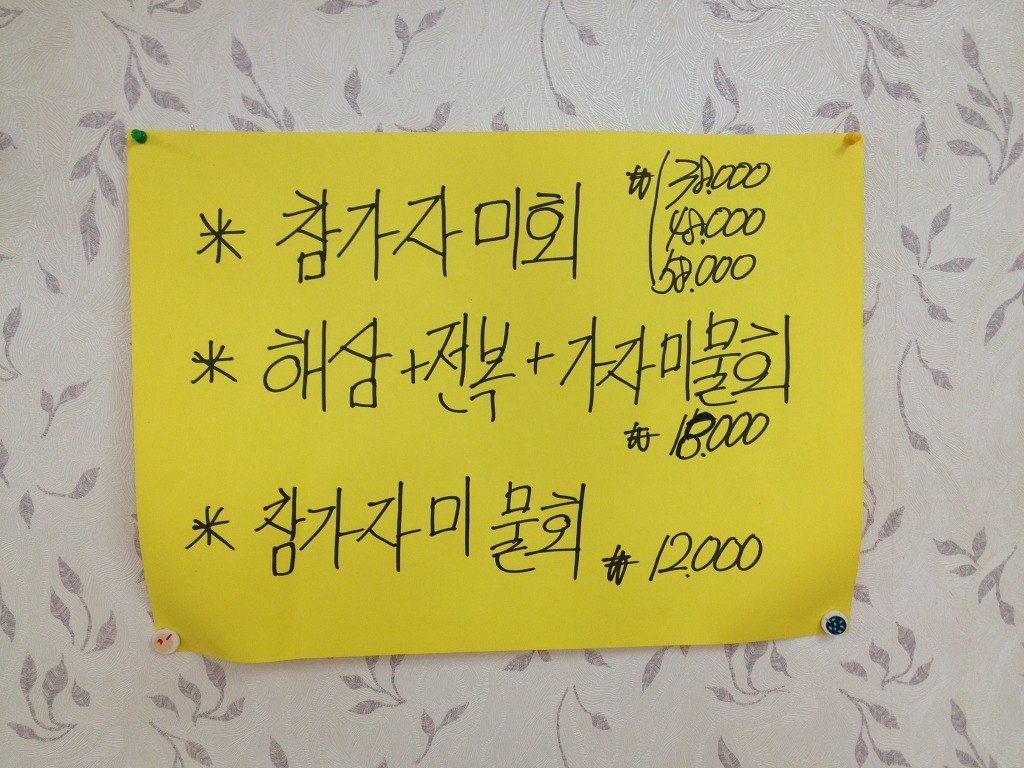 * 참가자미회 ₩ 38.000
48.000
58.000
* 해삼+전복+가자미물회
₩ 18.000
* 참가자미 물회 ₩ 12.000